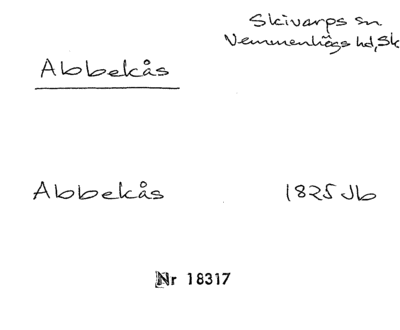 Skivarps sn.
Vemmenhögs hd, Sk
Abbekås
Abbekås 1825 Jb
Nr 18317